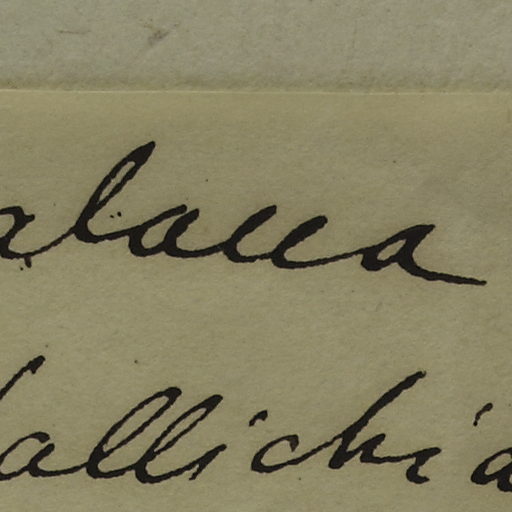 alaua
allichia